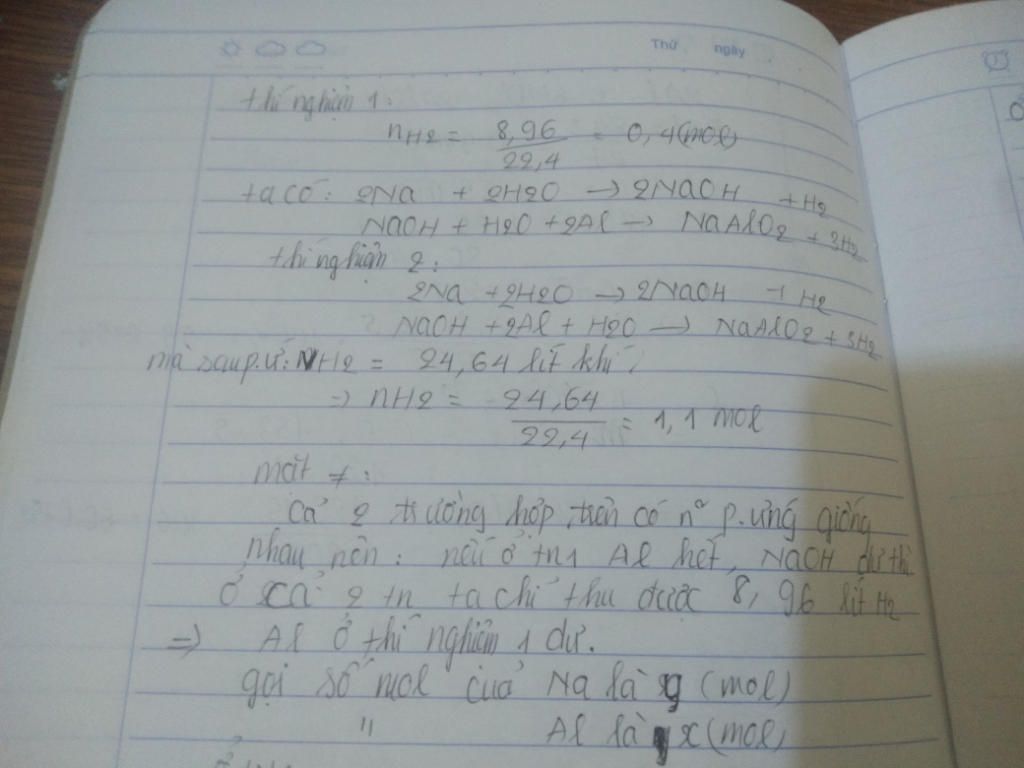 Thứ ngày
thí nghiệm 1:
nH2 = 8,96 / 22,4 = 0,4(mol)
ta có: 2Na + 2H2O → 2NaOH + H2
NaOH + H2O + 2Al → NaAlO2 + 3H2
thí nghiệm 2:
2Na + 2H2O → 2NaOH + H2
NaOH + 2Al + H2O → NaAlO2 + 3H2
mà sau p.ư: VH2 = 24,64 lít khí
=> nH2 = 24,64 / 22,4 = 1,1 mol
mặt ≠:
cả 2 trường hợp trên có p.ứng giống
nhau nên: nếu ở tn1 Al hết, NaOH dư thì
ở cả 2 tn ta chỉ thu được 8,96 lít H2
=> Al ở thí nghiệm 1 dư.
gọi số mol của Na là y (mol)
" Al là x (mol)